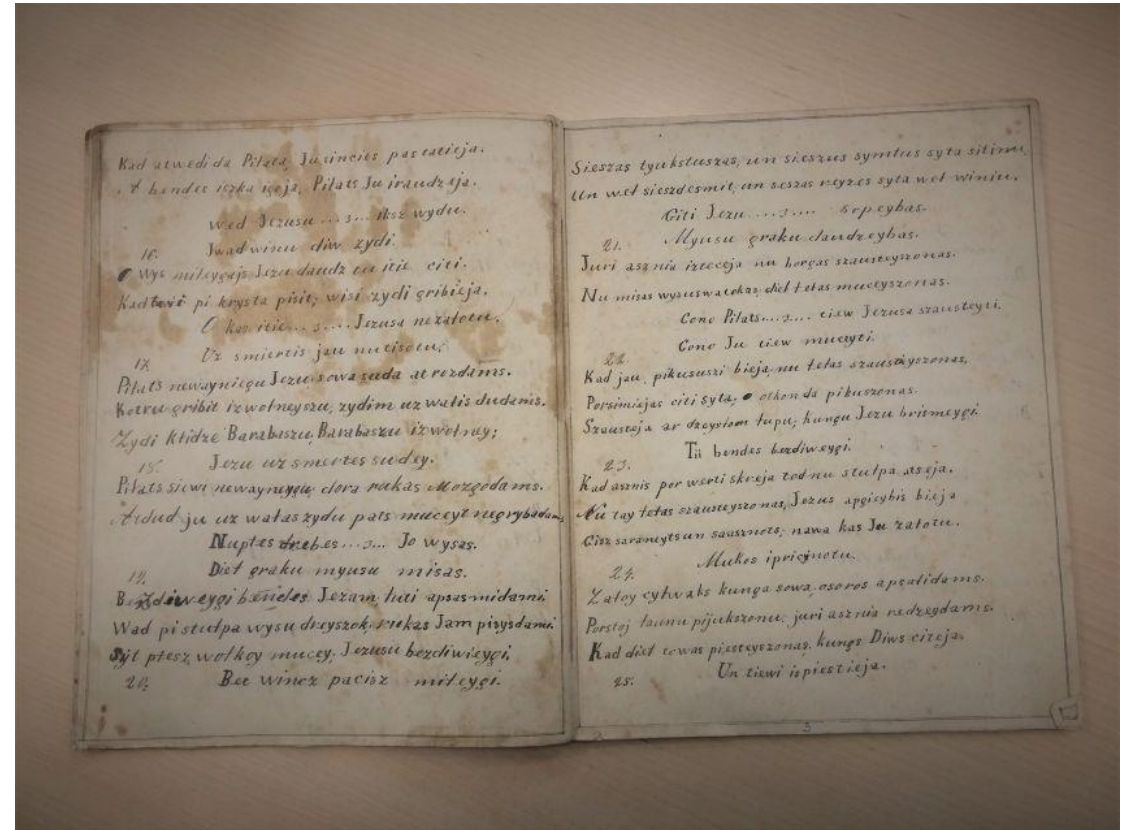 Kad atwedi da Piłata, Ju sincies pastatieja.
A bendes iczka igoja, Piłats Ju iraudzeja.
Wed Jezusu ... з ... iksz wydu.
16. Jwad winu diw zydi.
O wys miłeygajs Jezu daudz tu itie citi.
Kad tewi pi krysta pisit; wisi zydi gribieja.
O kas itie ... з .... Jezusa nezałotu.
17. Uz smiertis jau nutisotu,
Piłats newayniegu Jezu, sowa suda atrozdams.
Kotru gribit izwolneyszu, zydim uz walis dudams.
Zydi klidze Barabaszu, Barabaszu izwolnoy;
18. Jezu uz smertes sudey.
Piłats siewi newaynygu, dora rukas Mozgodams.
Atdud ju uz wałas zydu pats muceyt negrybadams
Nuptes drebes ... з ... Jo wysas.
19. Diel graku myusu misas.
Bezdiweygi bendes Jezam luti apsasmidami
Wad pi stułpa wysu dreyszok, rukas Jam pisysdami
Syt plesz wołkoy mucey, Jezusu bezdiwieygi,
20. Bet wincz pacisz miłeygi.
Sieszas tyukstuszas, un sieszus symtus syta sitimu,
Un wel sieszdesmit, un seszas reyzes syta wel winiu.
Citi Jezu .... з .... sopeybas.
21. Myusu graku daudzeybas.
Juri asznia izteceja nu borgas szausteyszonas.
Nu misas wysuswatokas, diel tetas muceyszonas.
Cono Piłats .... з .... ciew Jezusa szausteyti,
22. Cono Ju ciew muceyti.
Kad jau, pikususzi bieja, nu tetas szausteyszonas,
Porsimiejas citi syta, otkon da pikuszonas.
Szausteja ar dzeyslom tupu, kungu Jezu brismeygi.
23. Tii bendes bezdiweygi.
Kad asznis por werti skreja tod nu stułpa atseja.
Nu tay tetas szausteyszonas, Jezus apgieybis bieja
Cisz saraneyts un sausznots, nawa kas Ju załotu.
24. Mukos ipricynotu.
Załoy cylwaks kunga sowa, osoros apsalidams.
Porstoj launu pijukszonu, juri asznia redzeydams.
Kad diel towas piesteyszonas, kungs Diws cizeja.
25. Un tiewi ispiestieja.
3